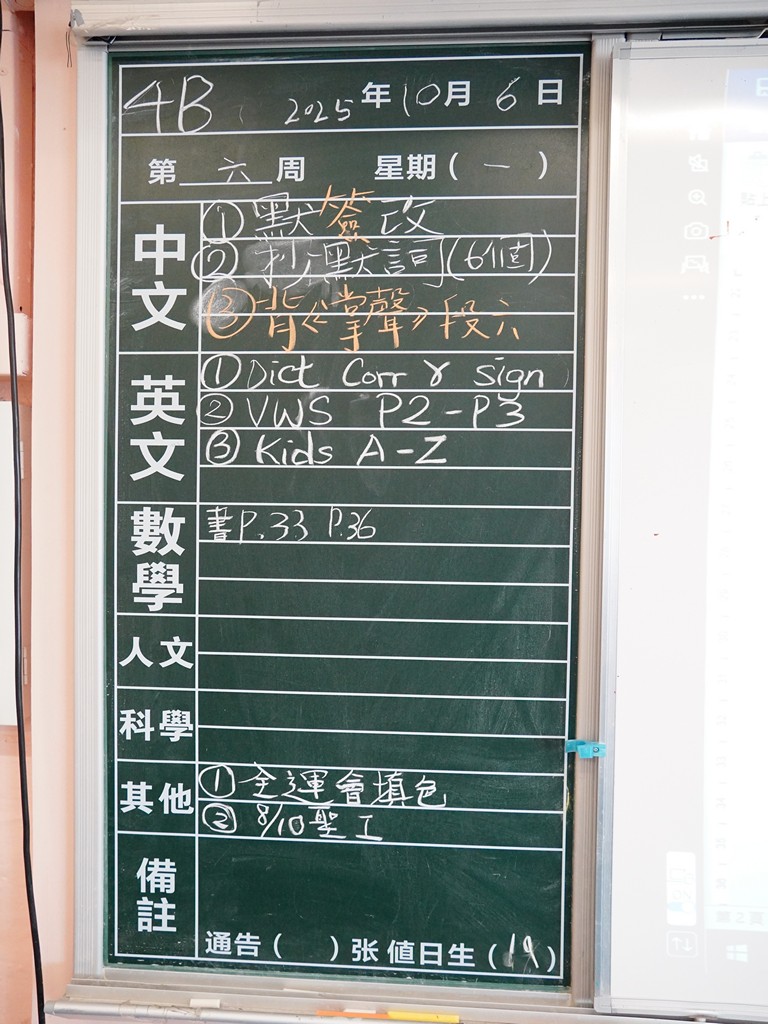 4B 2025年10月6日
第六周 星期(一)
中文
①默簽改
②抄默詞(6個)
③背《掌聲》段六
英文
① Dict Corr & sign
② VWS P2-P3
③ Kids A-Z
數學
書P.33 P.36
人文
科學
其他
①全運會填色
②8/10聖工
備註
通告( )张 值日生(19)